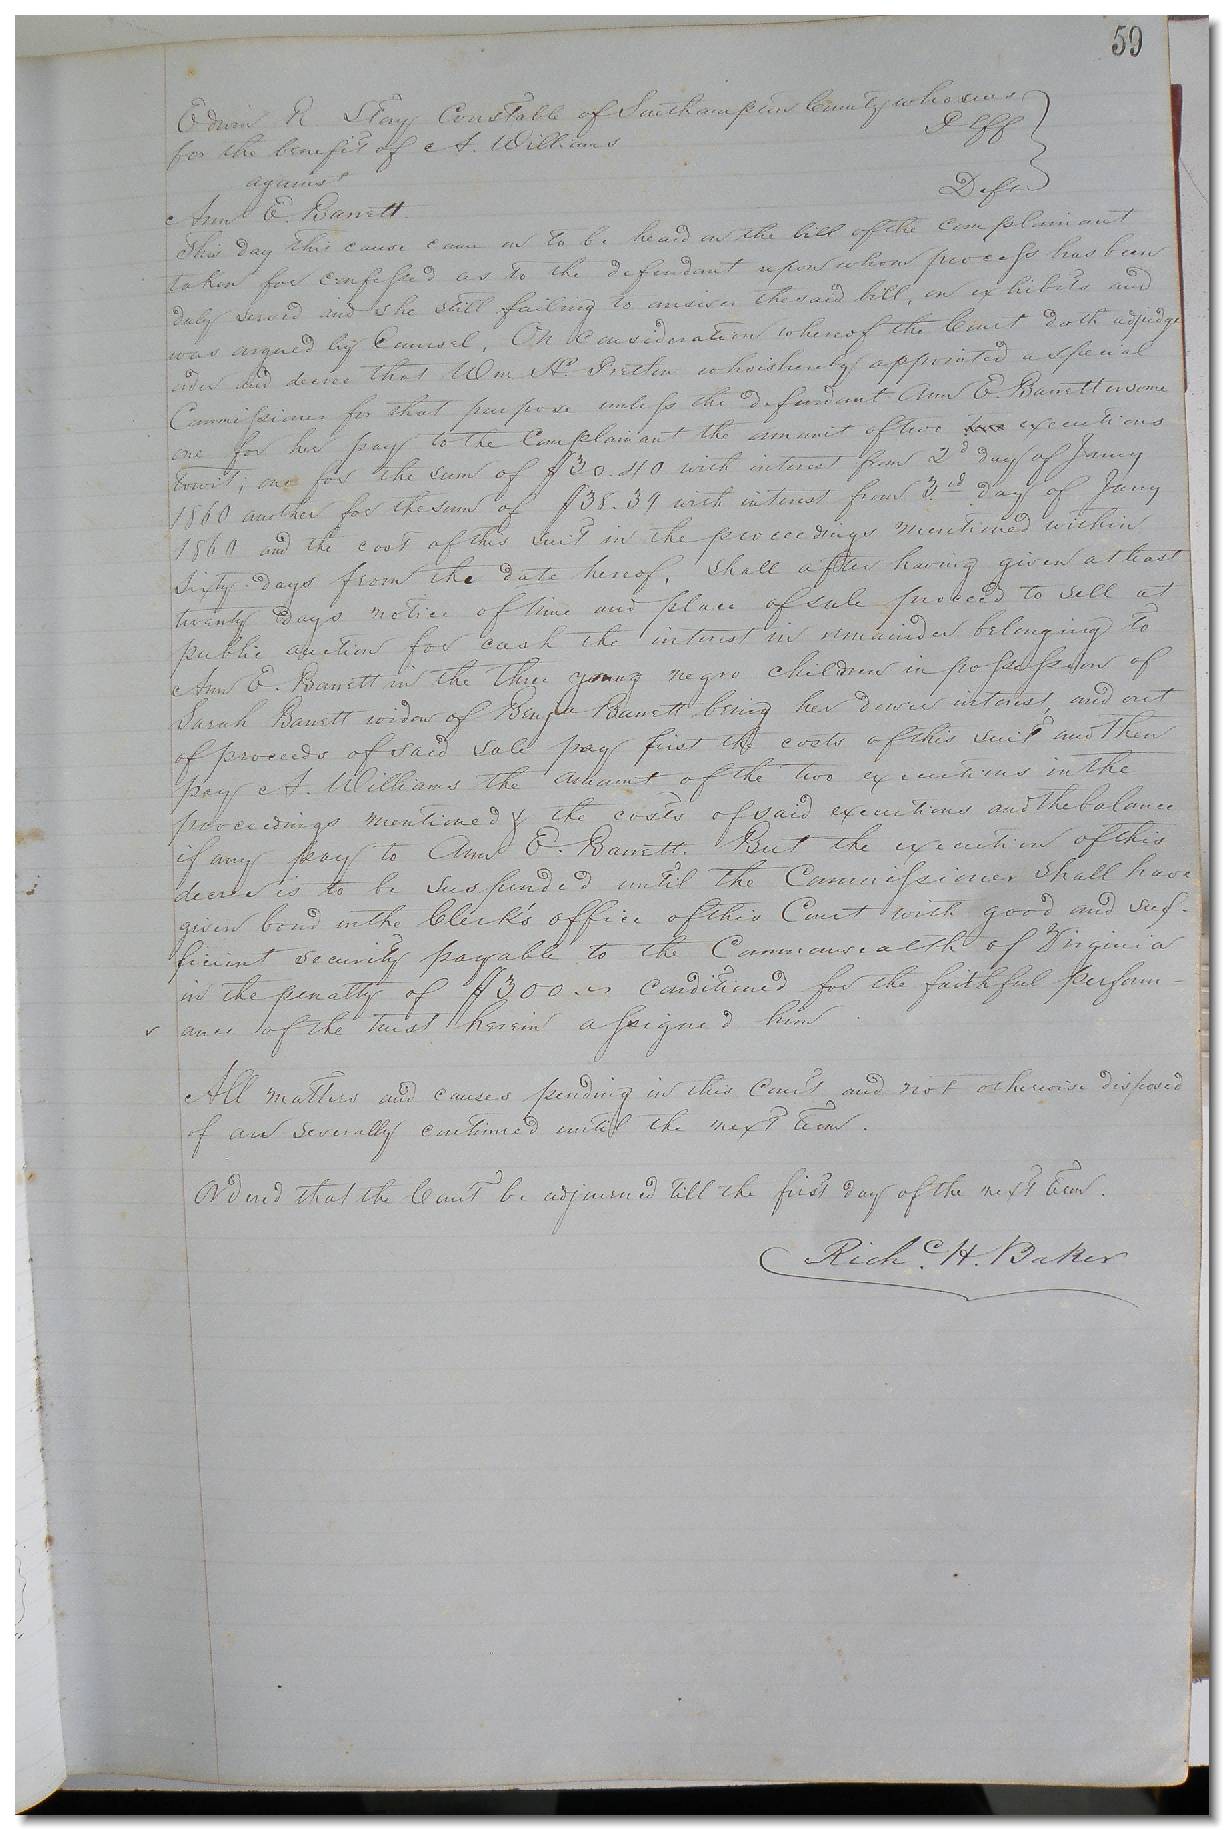 59
Edwin R Stay Constable of Southampton County who sues
Plff
for the benefit of A. Williams
against
Deft
Ann E. Barrett.
This day this cause came on to be heard on the bill of the complainant
taken for confessed as to the defendant upon whom process has been
duly served and she still failing to answer the said bill, on exhibits and
was argued by Counsel, On Consideration whereof the Court doth adjudge
order and decree that Wm H. who is hereby appointed a special
Commissioner for that purpose unless the defendant Ann E. Barrett or some
one for her pay to the Complainant the amount of two executions
towit; one for the sum of $30.40 with interest from 2d day of Jany
1860 another for the sum of $38.39 with interest from 3rd day of Jany
1860 and the cost of this suit in the proceedings mentioned within
sixty days from the date hereof, shall after having given at least
twenty days notice of time and place of sale proceed to sell at
public auction for cash the interest in remainder belonging to
Ann E. Barrett in the three young negro children in possession of
Sarah Barrett widow of Benja Barrett being her dower interest, and out
of proceeds of said sale pay first the costs of this suit and then
pay A. Williams the amount of the two executions in the
proceedings mentioned & the costs of said executions and the balance
if any pay to Ann E. Barrett. But the execution of this
decree is to be suspended until the Commissioner shall have
given bond in the Clerk's office of this Court with good and suf-
ficient security payable to the Commonwealth of Virginia
in the penalty of $300 conditioned for the faithful perform-
ance of the trust herein assigned him.
All matters and causes pending in this Court and not otherwise disposed
of are severally continued until the next term.
Ordered that the Court be adjourned till the first day of the next term.
Richd. H. Baker